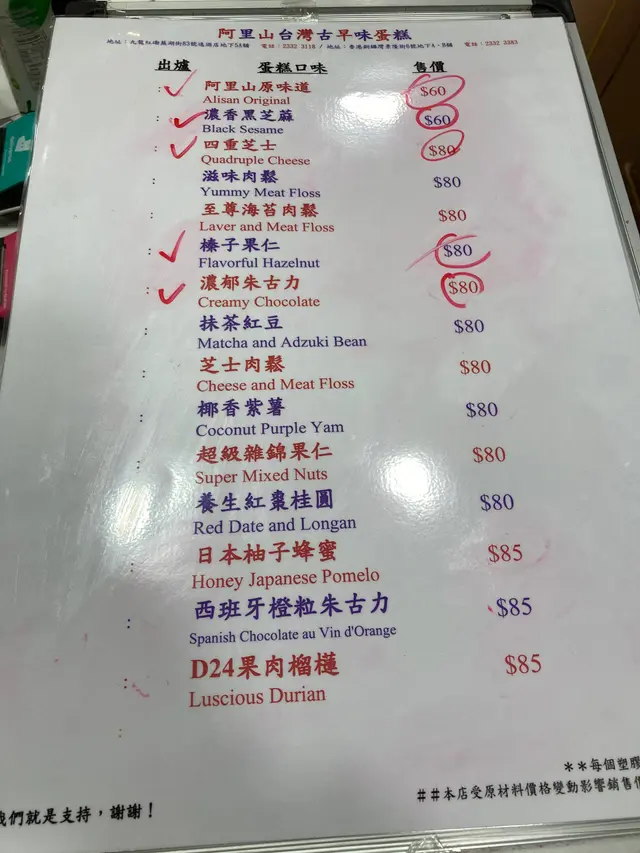 阿里山台灣古早味蛋糕
地址:九龍紅磡蕪湖街83號逸酒店地下5A舖 電話:2332 3118 / 地址:香港銅鑼灣景隆街6號地下A、B舖 電話:2332 3383
出爐 蛋糕口味 售價
: 阿里山原味道 $60
Alisan Original
: 濃香黑芝蔴 $60
Black Sesame
: 四重芝士 $80
Quadruple Cheese
: 滋味肉鬆 $80
Yummy Meat Floss
: 至尊海苔肉鬆 $80
Laver and Meat Floss
: 榛子果仁 $80
Flavorful Hazelnut
: 濃郁朱古力 $80
Creamy Chocolate
: 抹茶紅豆 $80
Matcha and Adzuki Bean
: 芝士肉鬆 $80
Cheese and Meat Floss
: 椰香紫薯 $80
Coconut Purple Yam
: 超級雜錦果仁 $80
Super Mixed Nuts
: 養生紅棗桂圓 $80
Red Date and Longan
: 日本柚子蜂蜜 $85
Honey Japanese Pomelo
: 西班牙橙粒朱古力 $85
Spanish Chocolate au Vin d'Orange
: D24果肉榴槤 $85
Luscious Durian
**每個塑膠
##本店受原材料價格變動影響銷售價
我們就是支持,謝謝!